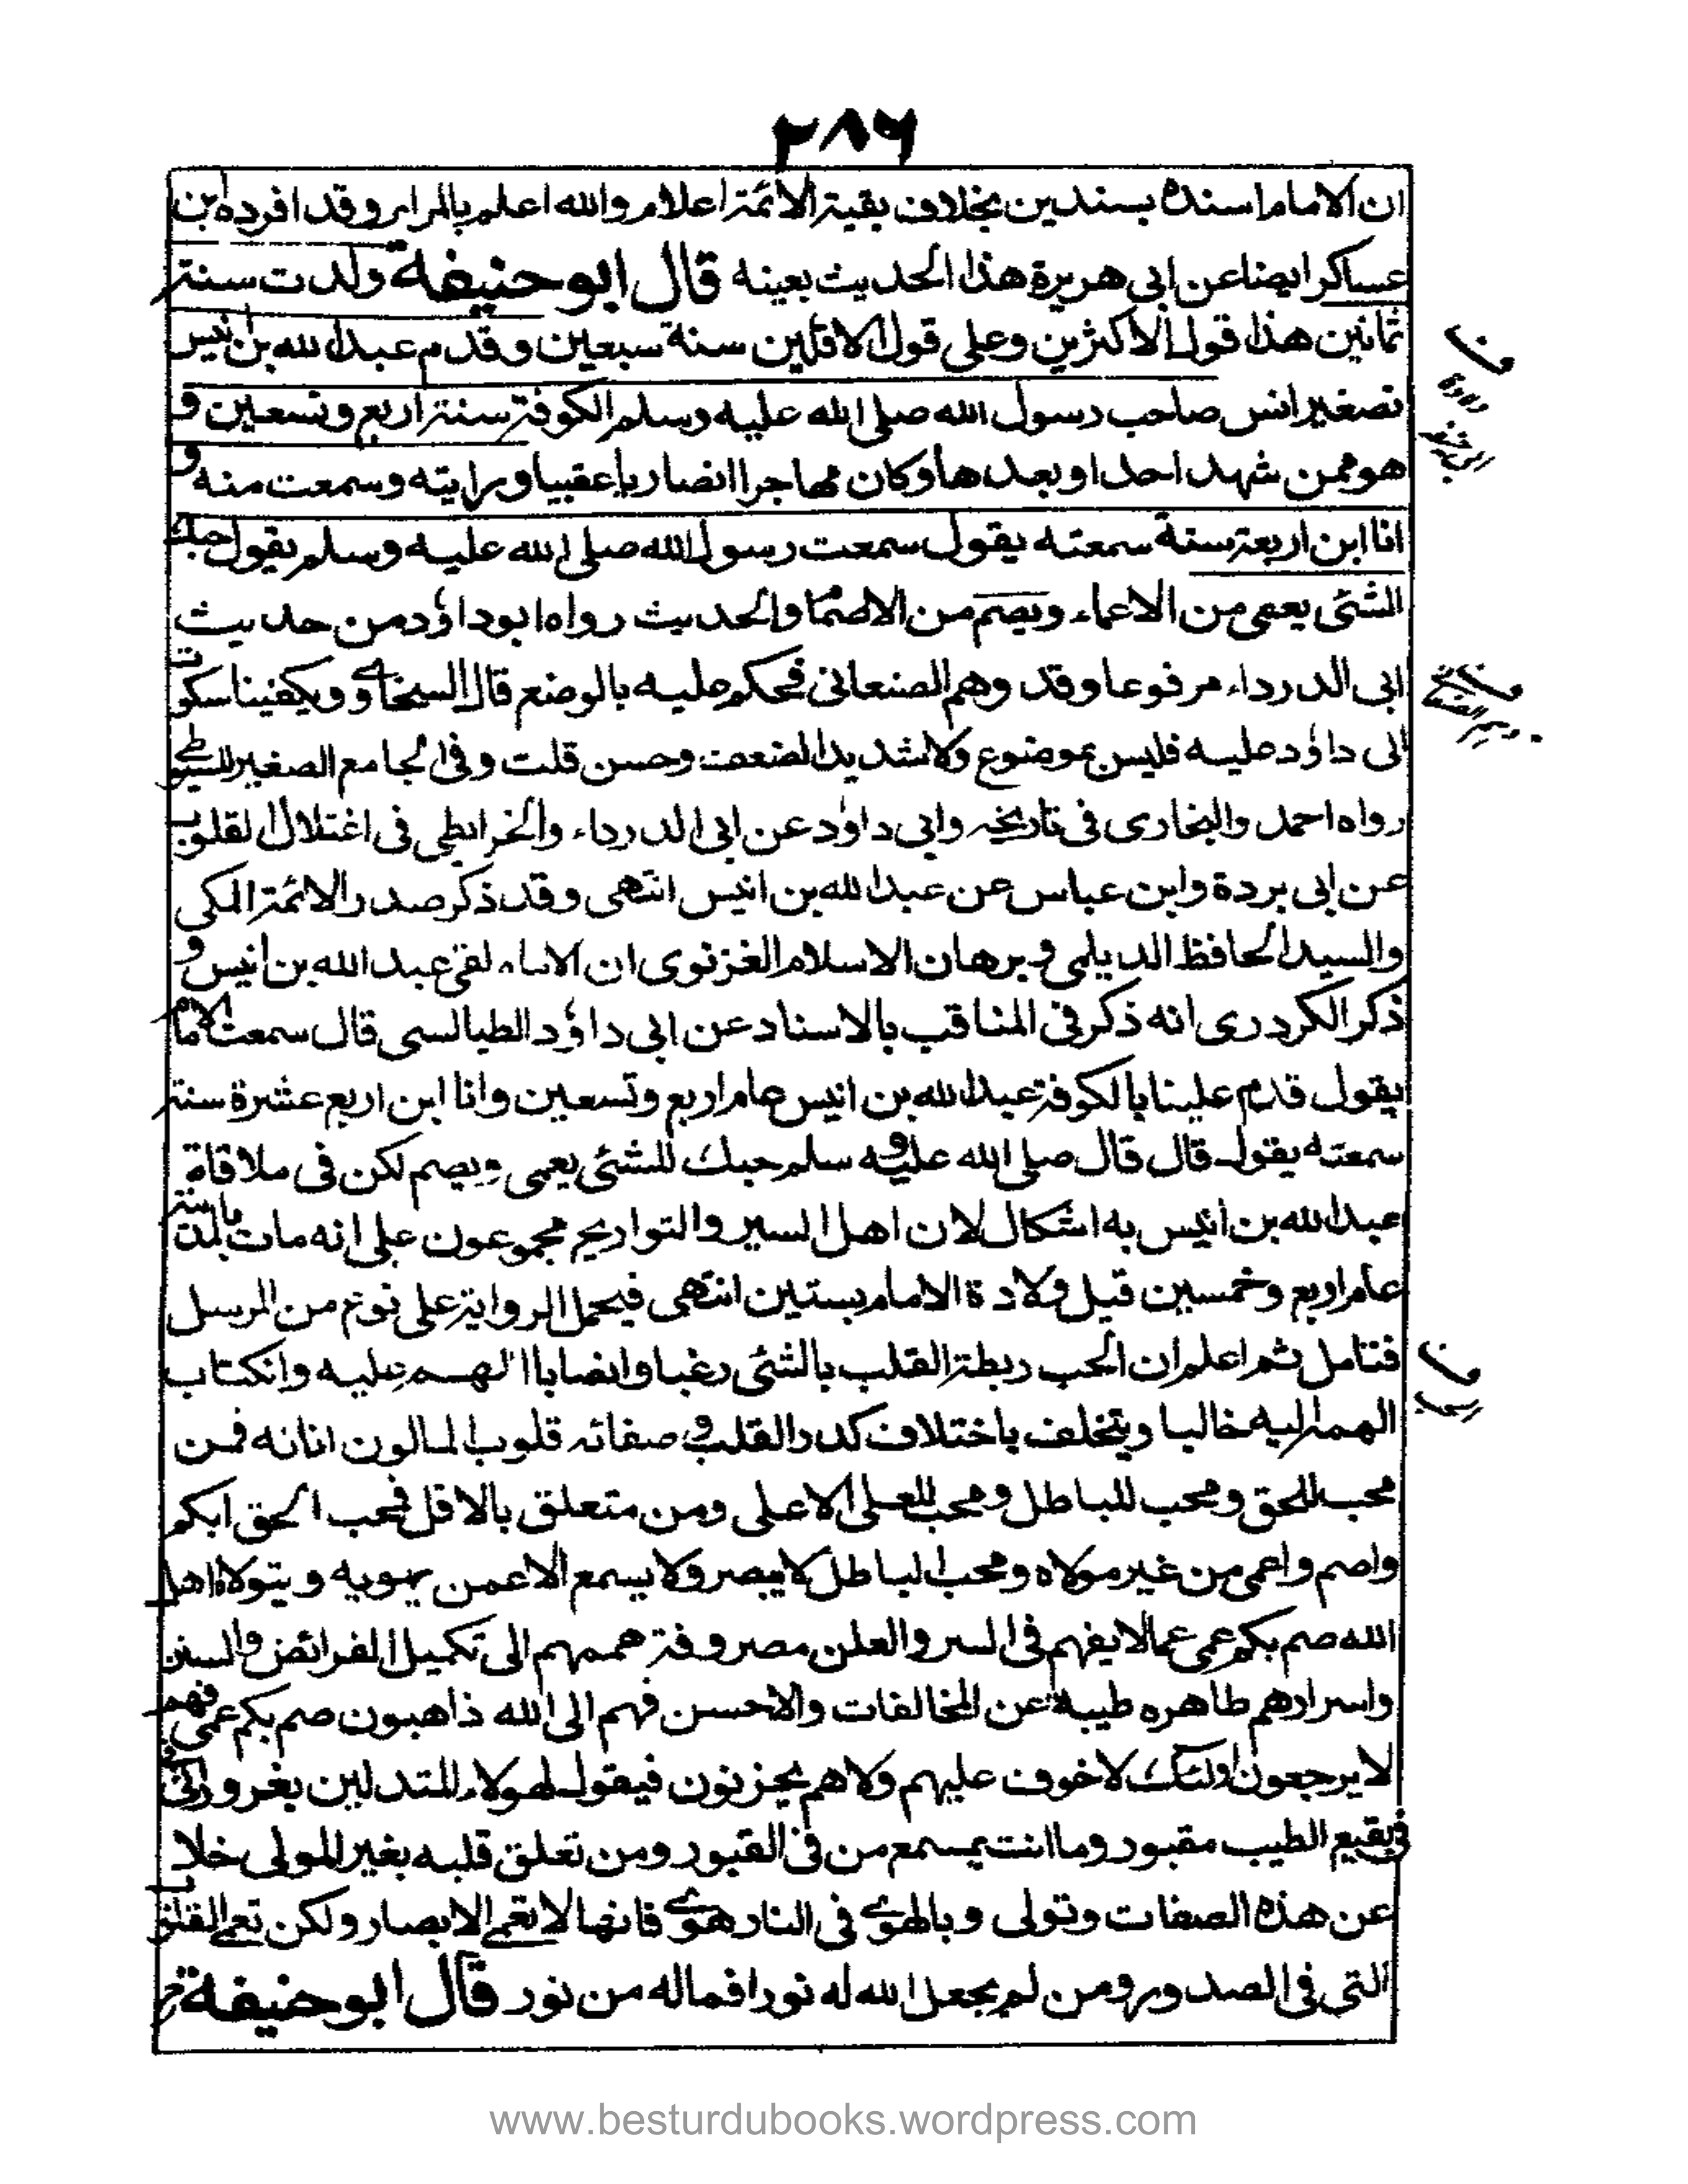 ٢٨٦
ان الامام اسنده بسندين بخلاف بقية الائمة اعلام والله اعلم بالمرام وقد افرده بن
عساكر ايضا عن ابى هريرة هذا الحديث بعينه قال ابو حنيفة ولدت سنة
ثمانين هذا قول الاكثرين وعلى قول الاقلين سنة سبعين وقدم عبد الله بن انيس
تصغير انس صاحب رسول الله صلى الله عليه وسلم الكوفة سنة اربع وتسعين و
هو ممن شهد احدا وبعدها وكان مهاجرا انصاريا عقبيا ورايته وسمعت منه و
انا ابن اربعة سنة سمعته يقول سمعت رسول الله صلى الله عليه وسلم يقول حبك
الشئ يعمى من الاعماء ويصم من الاصما والحديث رواه ابو داؤد من حديث
ابى الدرداء مرفوعا وقد وهم الصنعانى فحكم عليه بالوضع قال السخاوى ويكفينا سكوت
ابى داؤد عليه فليس بموضوع ولا شديد الضعف وحسن قلت وفى الجامع الصغير للسيوطى
رواه احمد والبخارى فى تاريخه وابى داؤد عن ابى الدرداء والخرائطى فى اغتلال القلوب
عن ابى بردة وابن عباس عن عبد الله بن انيس انتهى وقد ذكر صدر الائمة المكى
والسيد الحافظ الديلمى و برهان الاسلام الغزنوى ان الامام لقى عبد الله بن انيس و
ذكر الكردرى انه ذكر فى المناقب بالاسناد عن ابى داؤد الطيالسى قال سمعت الامام
يقول قدم علينا بالكوفة عبد الله بن انيس عام اربع وتسعين وانا ابن اربع عشرة سنة
سمعته يقول قال قال صلى الله عليه و سلم حبك للشئ يعمى ويصم لكن فى ملاقاة
عبد الله بن انيس به اشكال لان اهل السير والتواريخ مجموعون على انه مات بالمدينة
عام اربع وخمسين قبل ولادة الامام بستين انتهى فيحمل الرواية على نوع من المرسل
فتامل ثم اعلم ان الحب ربطة القلب بالشئ رغبا وانصابا الهم عليه وانكتاب
الهم اليه غالبا ويتخلف باختلاف كدر القلب و صفائه قلوب لسالون انانه فمن
محب للحق ومحب للباطل ومحب للعلى الاعلى ومن متعلق بالاقل فمحب الحق ابكم
واصم واعمى من غير مولاه ومحب الباطل لا يبصر ولا يسمع الا عمن يهويه ويتولاه اهل
الله صم بكم عمى عما لا يفهم فى السر والعلن مصروفة هممهم الى تكميل الفرائض والسنن
واسرارهم طاهره طيبة عن المخالفات والاحسن فهم الى الله ذاهبون صم بكم عمى فهم
لا يرجعون اولئك لا خوف عليهم ولا هم يحزنون فيقول لهولاء المتدلين بغرور
فى بقيع الطيب مقبور وما انت بمسمع من فى القبور ومن تعلق قلبه بغير المولى خلا
عن هذه الصفات وتولى وبالهوى فى النار هوى فانها لا تعمى الابصار ولكن تعمى القلوب
التى فى الصدور ومن لم يجعل الله له نورا فماله من نور قال ابو حنيفة
www.besturdubooks.wordpress.com